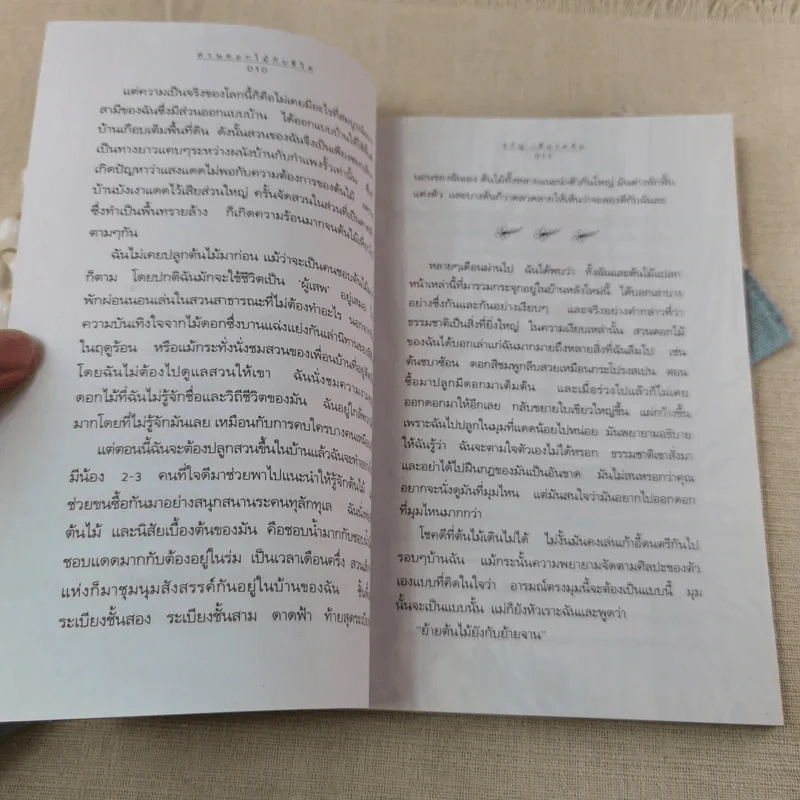 สวนดอกไม้กับชีวิต
010
แต่ความเป็นจริงของโลกนี้ก็คือไม่เคยมีอะไรที่สมบูรณ์
สามีของฉันซึ่งมีส่วนออกแบบบ้าน ได้ออกแบบบ้านให้ได้
บ้านเกือบเต็มพื้นที่ดิน ดังนั้นสวนของฉันจึงเป็นเพียง
เป็นทางยาวแคบๆระหว่างผนังบ้านกับกำแพงรั้วเท่านั้น
เกิดปัญหาว่าแสงแดดไม่พอกับความต้องการของต้นไม้
บ้านบังเงาแดดไว้เสียส่วนใหญ่ ครั้นจัดสวนในส่วนที่เป็น
ซึ่งทำเป็นพื้นทรายล้าง ก็เกิดความร้อนมากจนต้นไม้
ตามๆกัน
ฉันไม่เคยปลูกต้นไม้มาก่อน แม้ว่าจะเป็นคนชอบต้นไม้
ก็ตาม โดยปกติฉันมักจะใช้ชีวิตเป็น "ผู้เสพ" อยู่เสมอ
พักผ่อนนอนเล่นในสวนสาธารณะที่ไม่ต้องทำอะไร
ความบันเทิงใจจากไม้ดอกซึ่งบานแฉ่งแย่งกันเล่านิทาน
ในฤดูร้อน หรือแม้กระทั่งนั่งชมสวนของเพื่อนบ้าน
โดยฉันไม่ต้องไปดูแลสวนให้เขา ฉันนั่งชมความงาม
ดอกไม้ที่ฉันไม่รู้จักชื่อและวิถีชีวิตของมัน ฉันอยู่ใกล้
มากโดยที่ไม่รู้จักมันเลย เหมือนกับการคบใครบางคน
แต่ตอนนี้ฉันจะต้องปลูกสวนขึ้นในบ้านแล้วฉันจะทำ
มีน้อง 2-3 คนที่ใจดีมาช่วยพาไปแนะนำให้รู้จักต้นไม้
ช่วยขนซื้อกันมาอย่างสนุกสนานระคนทุลักทุเล ฉัน
ต้นไม้ และนิสัยเบื้องต้นของมัน คือชอบน้ำมากกับชอบ
ชอบแดดมากกับต้องอยู่ในร่ม เป็นเวลาเดือนครึ่ง
แห่งก็มาชุมนุมสังสรรค์กันอยู่ในบ้านของฉัน
ระเบียงชั้นสอง ระเบียงชั้นสาม ดาดฟ้า ท้ายสุดระเบียง
นอนของฉันเอง ต้นไม้ทั้งหลายแนะนำตัวกันใหญ่
แต่งตัว และบางต้นก็วาดลวดลายให้เห็นว่าจะลองดีกับฉันสะ
หลายๆเดือนผ่านไป ฉันได้พบว่า ทั้งฉันและต้นไม้แปลก
หน้าเหล่านี้ที่มารวมกระจุกอยู่ในบ้านหลังใหม่นี้ ได้บอกเล่าบาง
อย่างซึ่งกันและกันอย่างเงียบๆ และจริงอย่างคำกล่าวที่ว่า
ธรรมชาติเป็นสิ่งที่ยิ่งใหญ่ ในความเงียบเหล่านั้น สวนดอกไม้
ของฉันได้บอกเล่าแก่ฉันมากมายถึงหลายสิ่งที่ฉันลืมไป เช่น
ต้นชบาซ้อน ดอกสีชมพูกลีบสวยเหมือนกระโปรงสเปน ตอน
ซื้อมาปลูกมีดอกมาเต็มต้น และเมื่อร่วงไปแล้วก็ไม่เคย
ออกดอกมาให้อีกเลย กลับขยายใบเขียวใหญ่ขึ้น แผ่กว้างขึ้น
เพราะฉันไปปลูกในมุมที่แดดน้อยไปหน่อย มันพยายามอธิบาย
ให้ฉันรู้ว่า ฉันจะตามใจตัวเองไม่ได้หรอก ธรรมชาติเขาสั่งมา
และอย่าได้ไปฝืนกฎของมันเป็นอันขาด มันไม่สนหรอกว่าคุณ
อยากจะนั่งดูมันที่มุมไหน แต่มันสนใจว่ามันอยากไปออกดอก
ที่มุมไหนมากกว่า
โชคดีที่ต้นไม้เดินไม่ได้ ไม่งั้นมันคงเล่นเก้าอี้ดนตรีกันไป
รอบๆบ้านฉัน แม้กระนั้นความพยายามจัดตามศิลปะของตัว
เองแบบที่คิดในใจว่า อารมณ์ตรงมุมนี้จะต้องเป็นแบบนี้ มุม
นั้นจะเป็นแบบนั้น แม่ก็ยังหัวเราะฉันและพูดว่า
"ย้ายต้นไม้ยังกับย้ายจาน"